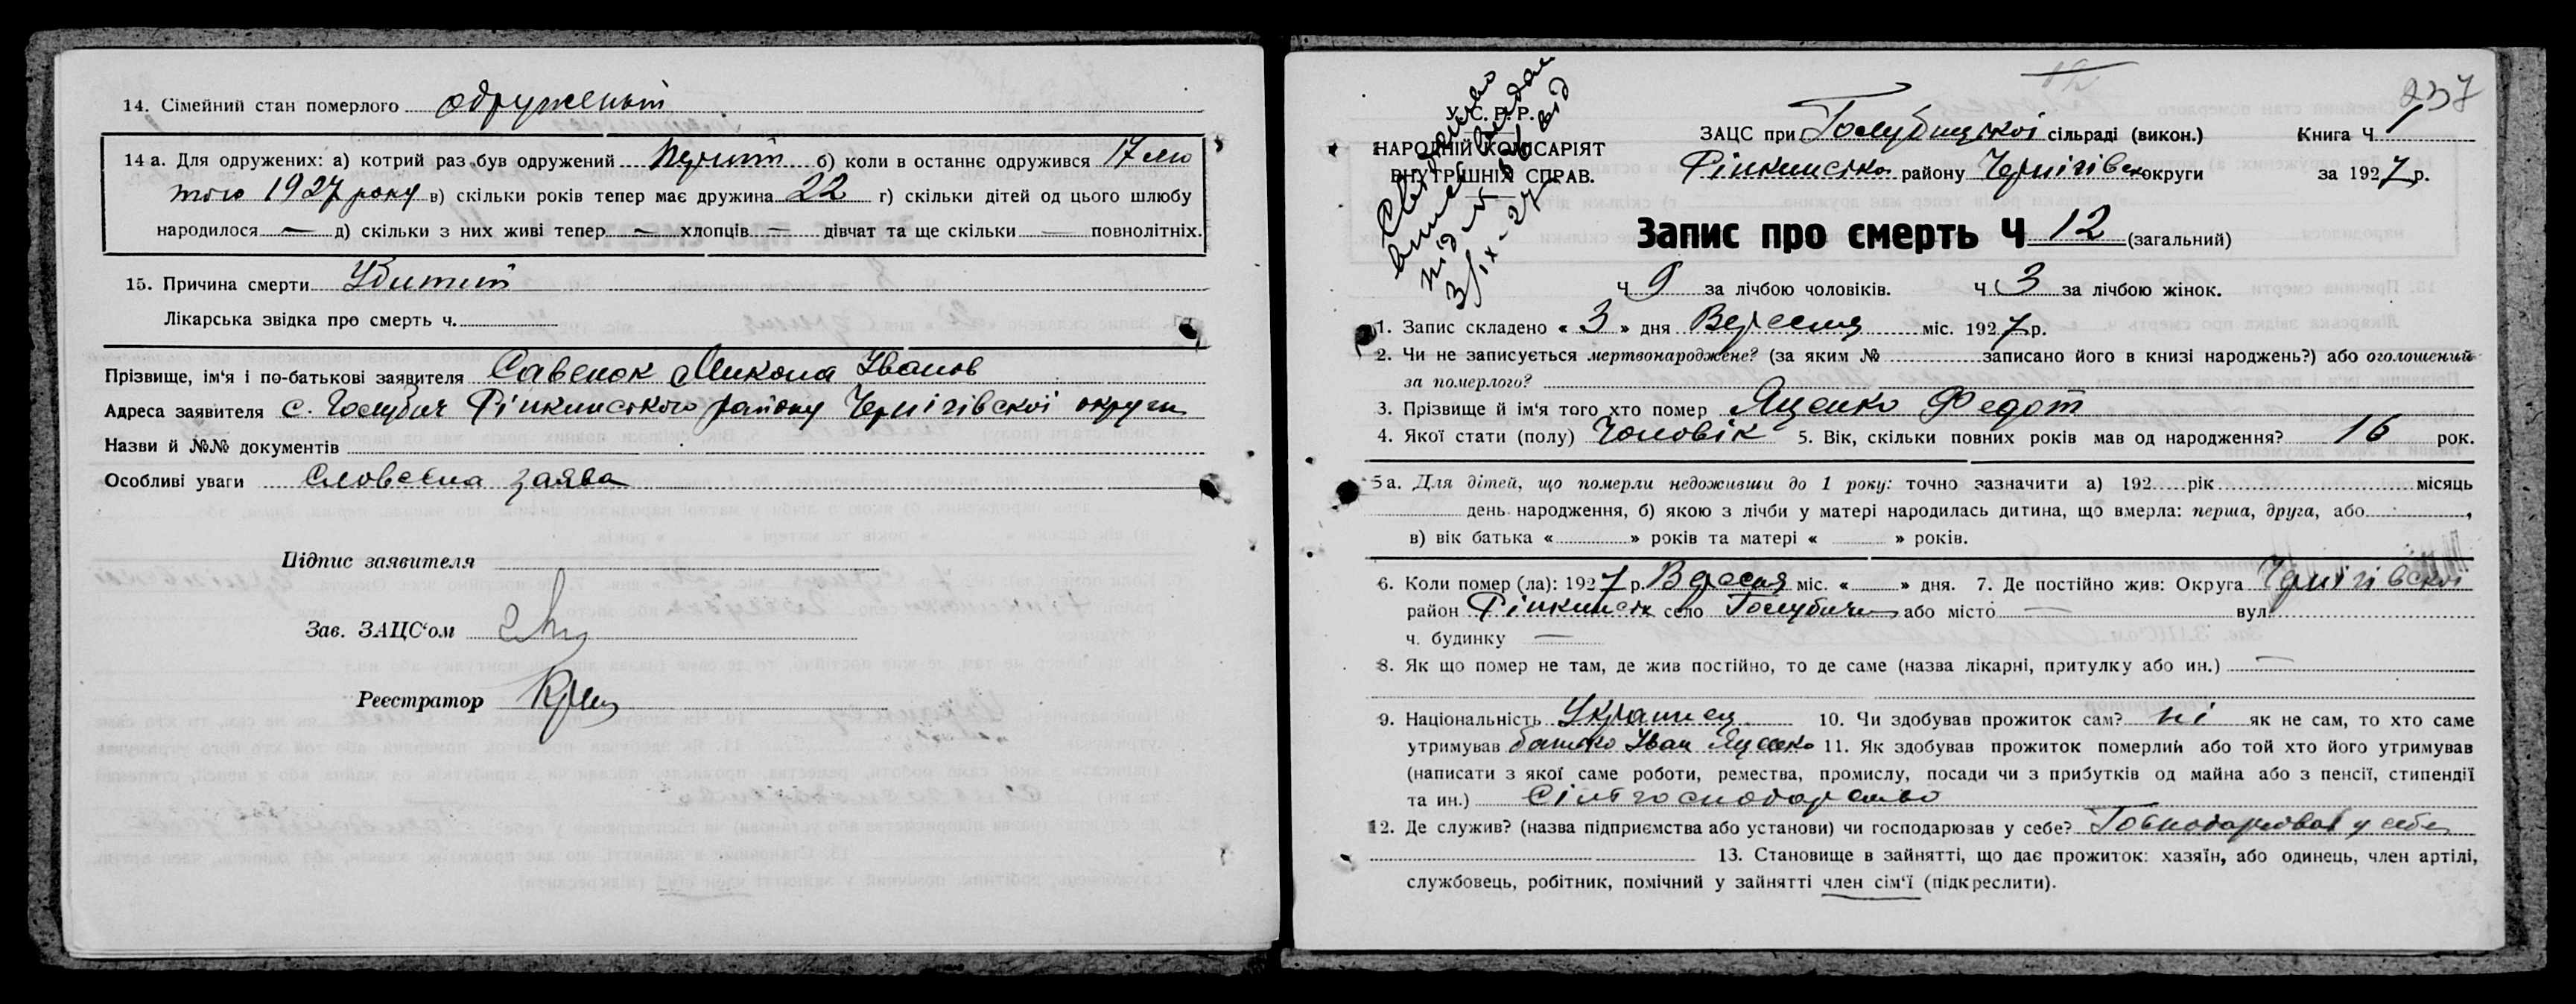 14. Сімейний стан померлого одружений
14 а. Для одружених: а) котрий раз був одружений перший б) коли в останнє одружився 17 лю
того 1927 року в) скільки років тепер має дружина 22 г) скільки дітей од цього шлюбу
народилося — д) скільки з них живі тепер — хлопців — дівчат та ще скільки — повнолітніх.
15. Причина смерти Убитий
Лікарська звідка про смерть ч.
Прізвище, ім'я і по-батькові заявителя Савенок Микола Іванов
Адреса заявителя с. Голубичі Ріпкинського району Чернігівської округи
Назви й №№ документів
Особливі уваги Словесна заява
Підпис заявителя
Зав. ЗАЦС'ом
Реєстратор
237
12
У. С. Р. Р.
НАРОДНІЙ КОМІСАРІЯТ
ВНУТРІШНІХ СПРАВ.
3/ІХ-27
ЗАЦС при Голубицької сільраді (викон.) Книга Ч 1
Ріпкинськ району Чернігівськ округи за 1927 р.
Запис про смерть Ч 12 (загальний)
Ч 9 за лічбою чоловіків. Ч 3 за лічбою жінок.
1. Запис складено « 3 » дня Вересня міс. 1927 р.
2. Чи не записується мертвонароджене? (за яким № записано його в книзі народжень?) або оголошений
за померлого?
3. Прізвище й ім'я того хто помер Яценко Федот
4. Якої стати (полу) Чоловік 5. Вік, скільки повних років мав од народження? 16 рок.
5 а. Для дітей, що померли недоживши до 1 року: точно зазначити а) 192 рік місяць
день народження, б) якою з лічби у матері народилась дитина, що вмерла: перша, друга, або ,
в) вік батька « » років та матері « » років.
6. Коли помер (ла): 1927 р. Вересня міс. « » дня. 7. Де постійно жив: Округа Чернігівської
район Ріпкинськ село Голубичи або місто — вул.
ч. будинку —
8. Як що помер не там, де жив постійно, то де саме (назва лікарні, притулку або ин.) —
9. Національність Українец 10. Чи здобував прожиток сам? ні як не сам, то хто саме
утримував батько Іван Яценко 11. Як здобував прожиток померлий або той хто його утримував
(написати з якої саме роботи, ремества, промислу, посади чи з прибутків од майна або з пенсії, стипендії
та ин.) Сільгосподарство
12. Де служив? (назва підприємства або установи) чи господарював у себе? Господарював у себе
13. Становище в зайнятті, що дає прожиток: хазяїн, або одинець, член артілі,
службовець, робітник, помічний у зайнятті член сім'ї (підкреслити).